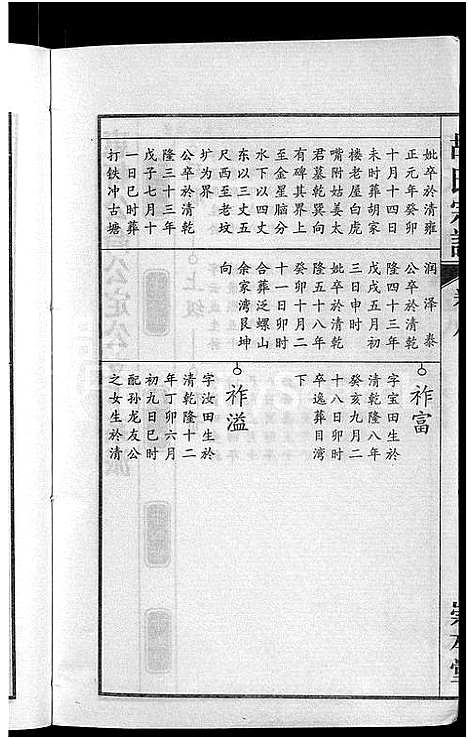 妣卒於清雍
正元年癸卯
十月十四日
未时葬胡家
楼老屋白虎
嘴附姑姜太
君墓乾巽向
有碑其界上
至金星脑分
水下以四丈
东以三丈五
尺西至老坟
圹为界
公卒於清乾
隆三十三年
戊子七月十
一日巳时葬
打铁冲古塘
润泽泰
公卒於清乾
隆四十三年
戊戌五月初
三日申时
妣卒於清乾
隆五十八年
癸卯十月二
十一日卯时
合葬泛螺山
余家湾艮坤
向
祚富
字宝田生於
清乾隆八年
癸亥九月二
十八日卯时
卒逸葬目湾
下
祚溢
字汝田生於
清乾隆十二
年丁卯六月
初九日巳时
配孙龙友公
之女生於清